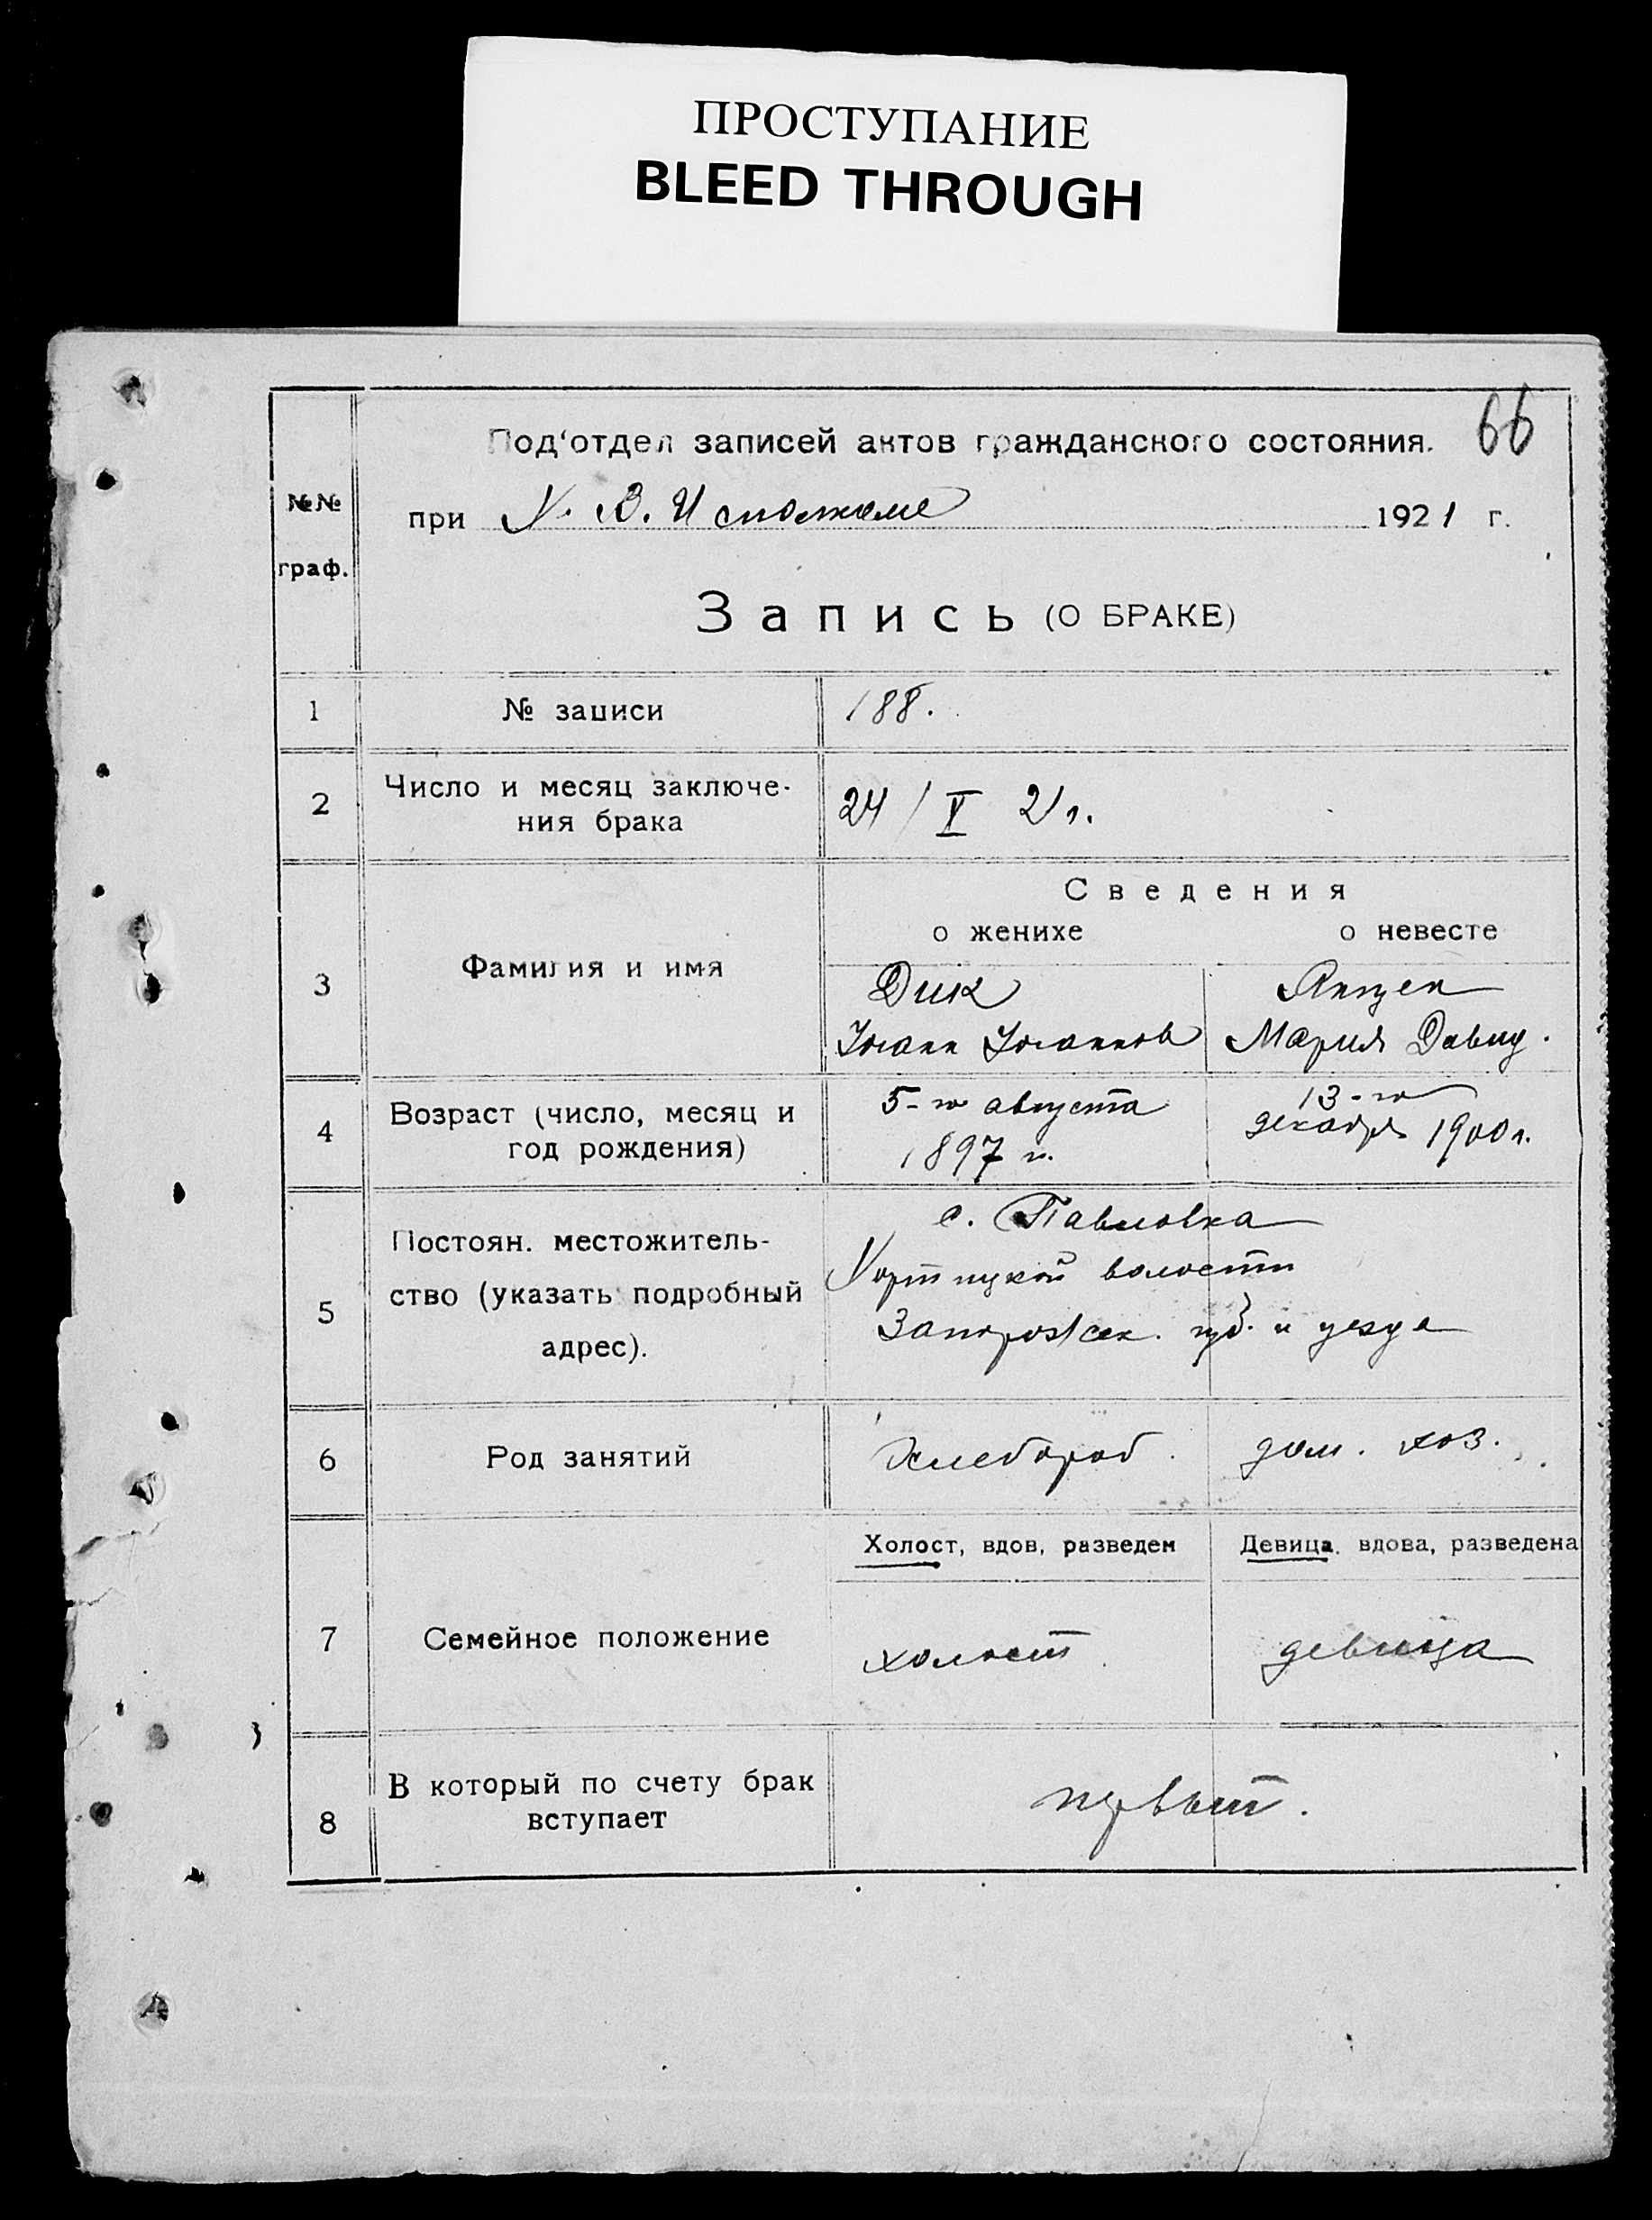 ПРОСТУПАНИЕ
BLEED THROUGH
66
№№
граф.
Под'отдел записей актов гражданского состояния.
при Х. В. Исполкоме 1921 г.
Запись (О БРАКЕ)
1 № записи 188.
2 Число и месяц заключе-
ния брака 24/V 21 г.
Сведения
о женихе о невесте
3 Фамилия и имя
Дик Янцен
Иоганн Иоганнов Мария Давид.
4 Возраст (число, месяц и
год рождения)
5-го августа 13-го
1897 г. декабря 1900 г.
5 Постоян. местожитель-
ство (указать подробный
адрес).
с. Павловка
Хортицкой волости
Запорожск. губ. и уезда
6 Род занятий Хлебороб. дом. хоз.
Холост, вдов, разведен Девица, вдова, разведена
7 Семейное положение холост девица
8 В который по счету брак
вступает
первый.